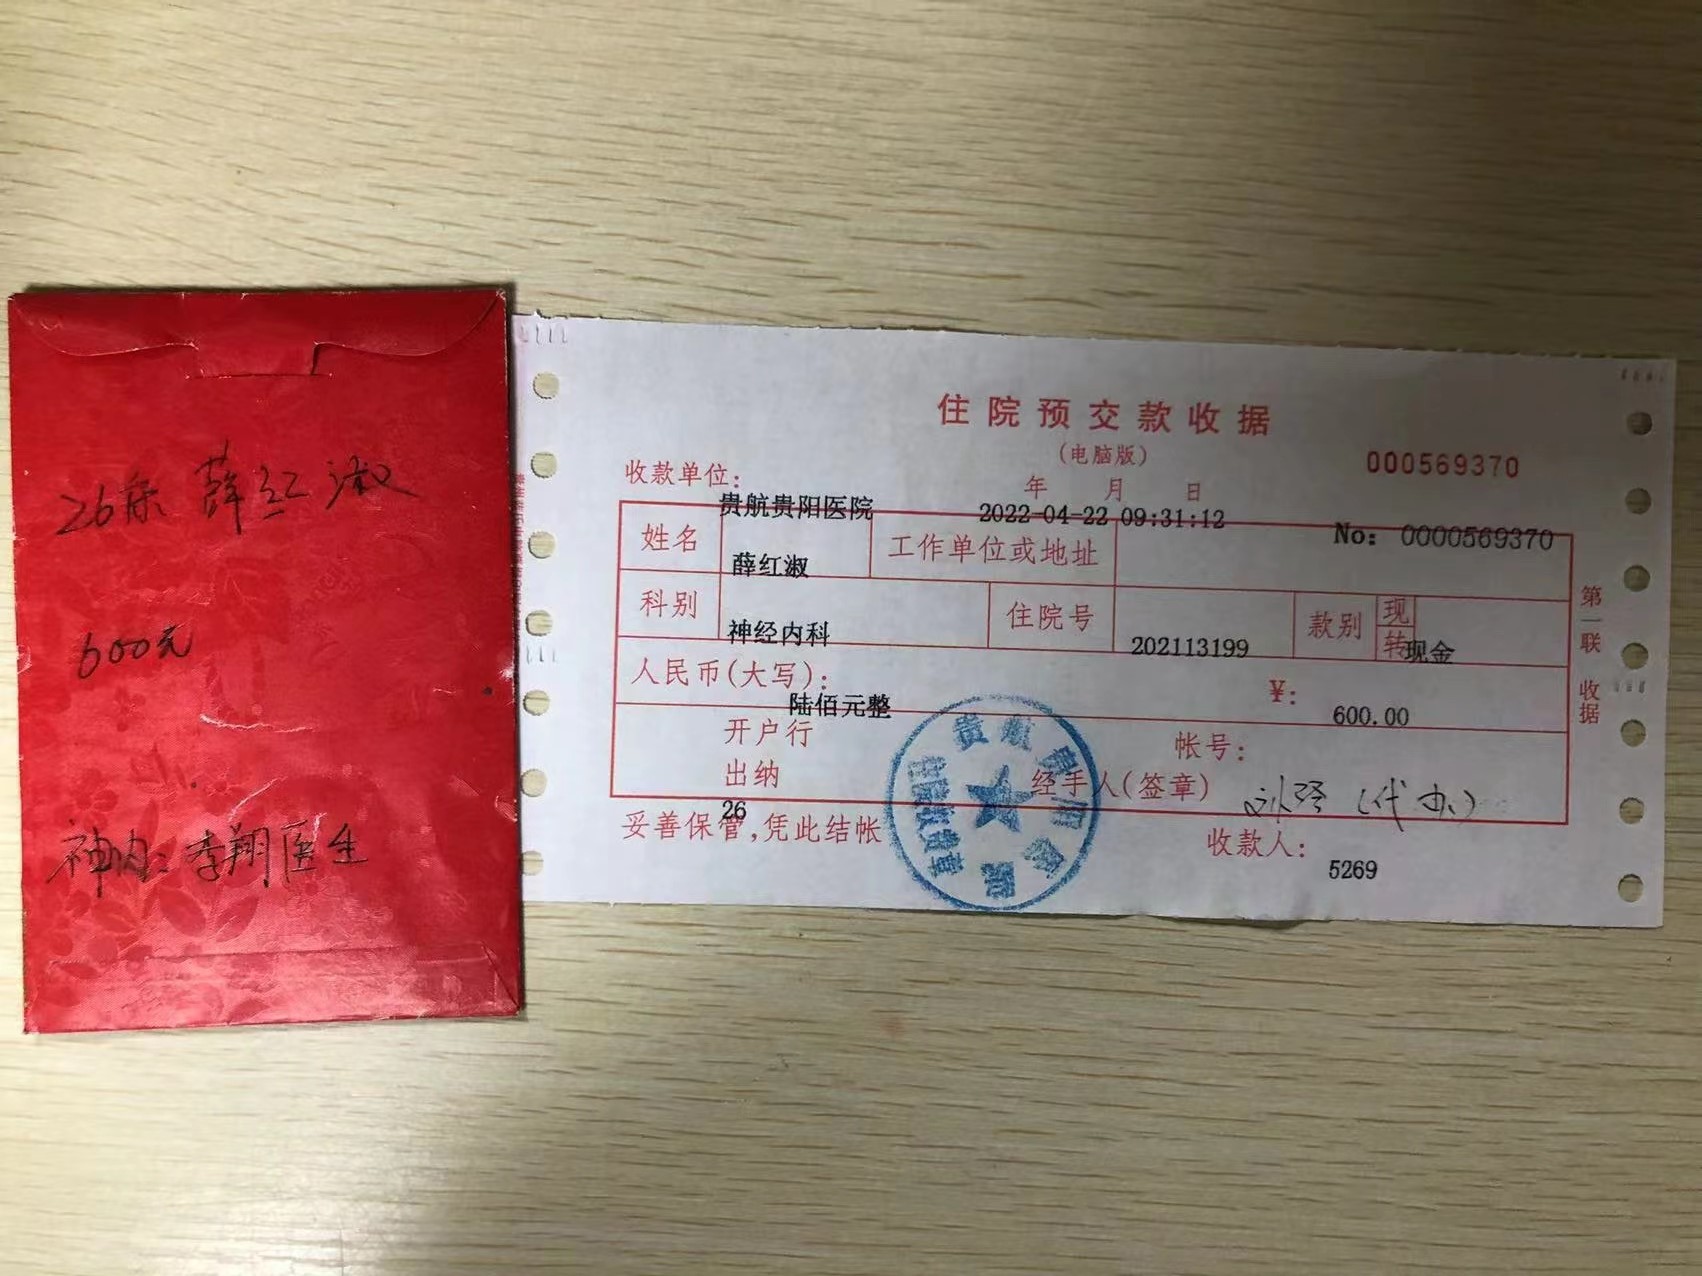 26床 薛红淑
600元
神内：李翔医生
住院预交款收据
(电脑版)
000569370
收款单位：
贵航贵阳医院
年 月 日
2022-04-22 09:31:12
No: 0000569370
姓名
薛红淑
工作单位或地址
科别
神经内科
住院号
202113199
款别
现
转
现金
人民币(大写)：
陆佰元整
¥：
600.00
开户行
帐号：
出纳
26
经手人(签章)
(代办)
妥善保管,凭此结帐
收款人：
5269
第一联 收据
贵航贵阳医院
住院收费章